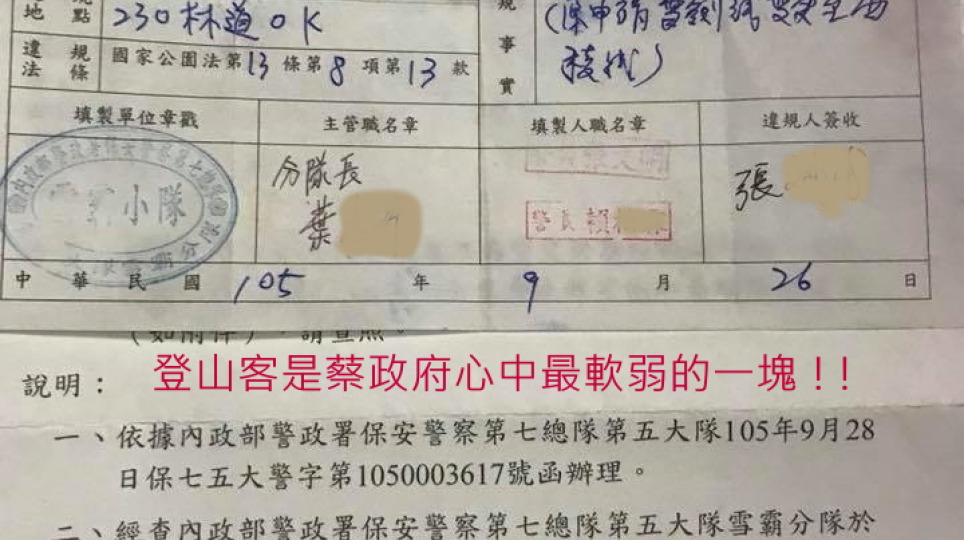 地 點 230林道0K
規 事 實
違 規
法 條 國家公園法第13條第8項第13款
填製單位章戳 主管職名章 填製人職名章 違規人簽收
小隊 分隊長 張
葉 警員 賴
中華民國 105 年 9 月 26 日
(如附件),請查照。
登山客是蔡政府心中最軟弱的一塊!!
說明:
一、依據內政部警政署保安警察第七總隊第五大隊105年9月28
日保七五大警字第1050003617號函辦理。
二、經查內政部警政署保安警察第七總隊第五大隊雪霸分隊於